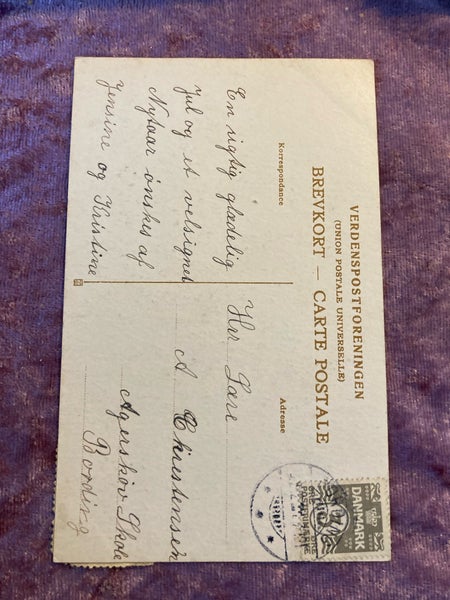 VERDENSPOSTFORENINGEN
(UNION POSTALE UNIVERSELLE)
BREVKORT — CARTE POSTALE
Korrespondance
Adresse
En rigtig glædelig
Jul og et velsignet
Nytaar ønskes af.
Jensine og Kristine
Hr. Lære
A Christensen
Agerskov Skole
Bording
DANMARK